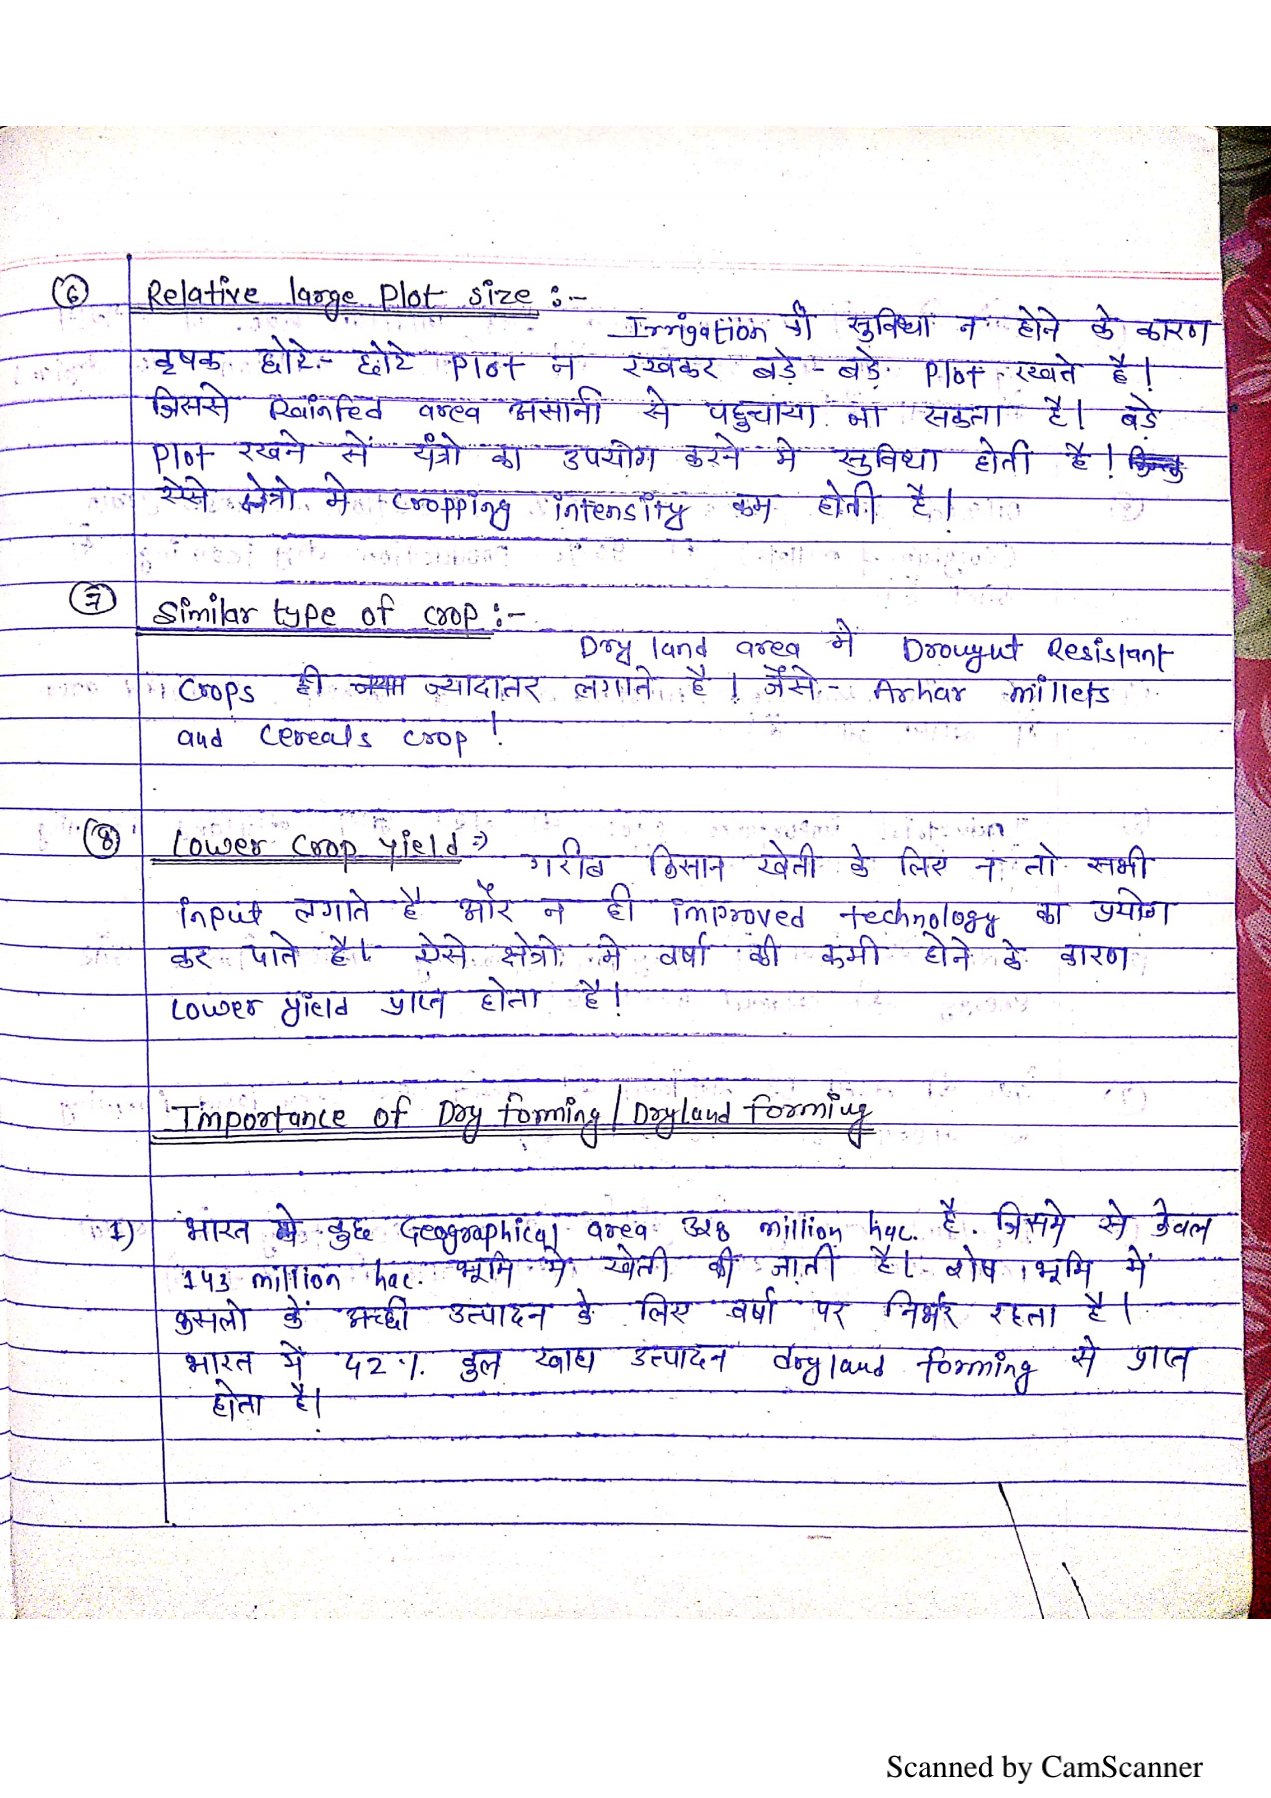 (6) Relative large Plot size :-
Irrigation की सुविधा न होने के कारण
कृषक छोटे-छोटे Plot न रखकर बड़े-बड़े Plot रखते है।
जिससे Rainfed area असानी से पहुचाया जा सकता है। बड़े
Plot रखने से यंत्रो का उपयोग करने मे सुविधा होती है। किन्तु
ऐसे क्षेत्रो मे cropping intensity कम होती है।
(7) Similar type of crop :-
Dry land area मे Drougut Resistant
crops ही ज्यादातर लगाते है। जैसे- Arhar millets
and cereals crop।
(8) Lower Crop yield ⇒
गरीब किसान खेती के लिए न तो सभी
input लगाते है और न ही improved technology का प्रयोग
कर पाते है। ऐसे क्षेत्रो मे वर्षा की कमी होने के कारण
Lower yield प्राप्त होता है।
Importance of Dry forming / Dryland forming
1) भारत मे कुछ Geographical area 328 million hac. है. जिसमे से केवल
143 million hac. भूमि मे खेती की जाती है। शेष भूमि में
फसलो के अच्छी उत्पादन के लिए वर्षा पर निर्भर रहता है।
भारत में 42%. कुल खाद्य उत्पादन dryland forming से प्राप्त
होता है।
Scanned by CamScanner